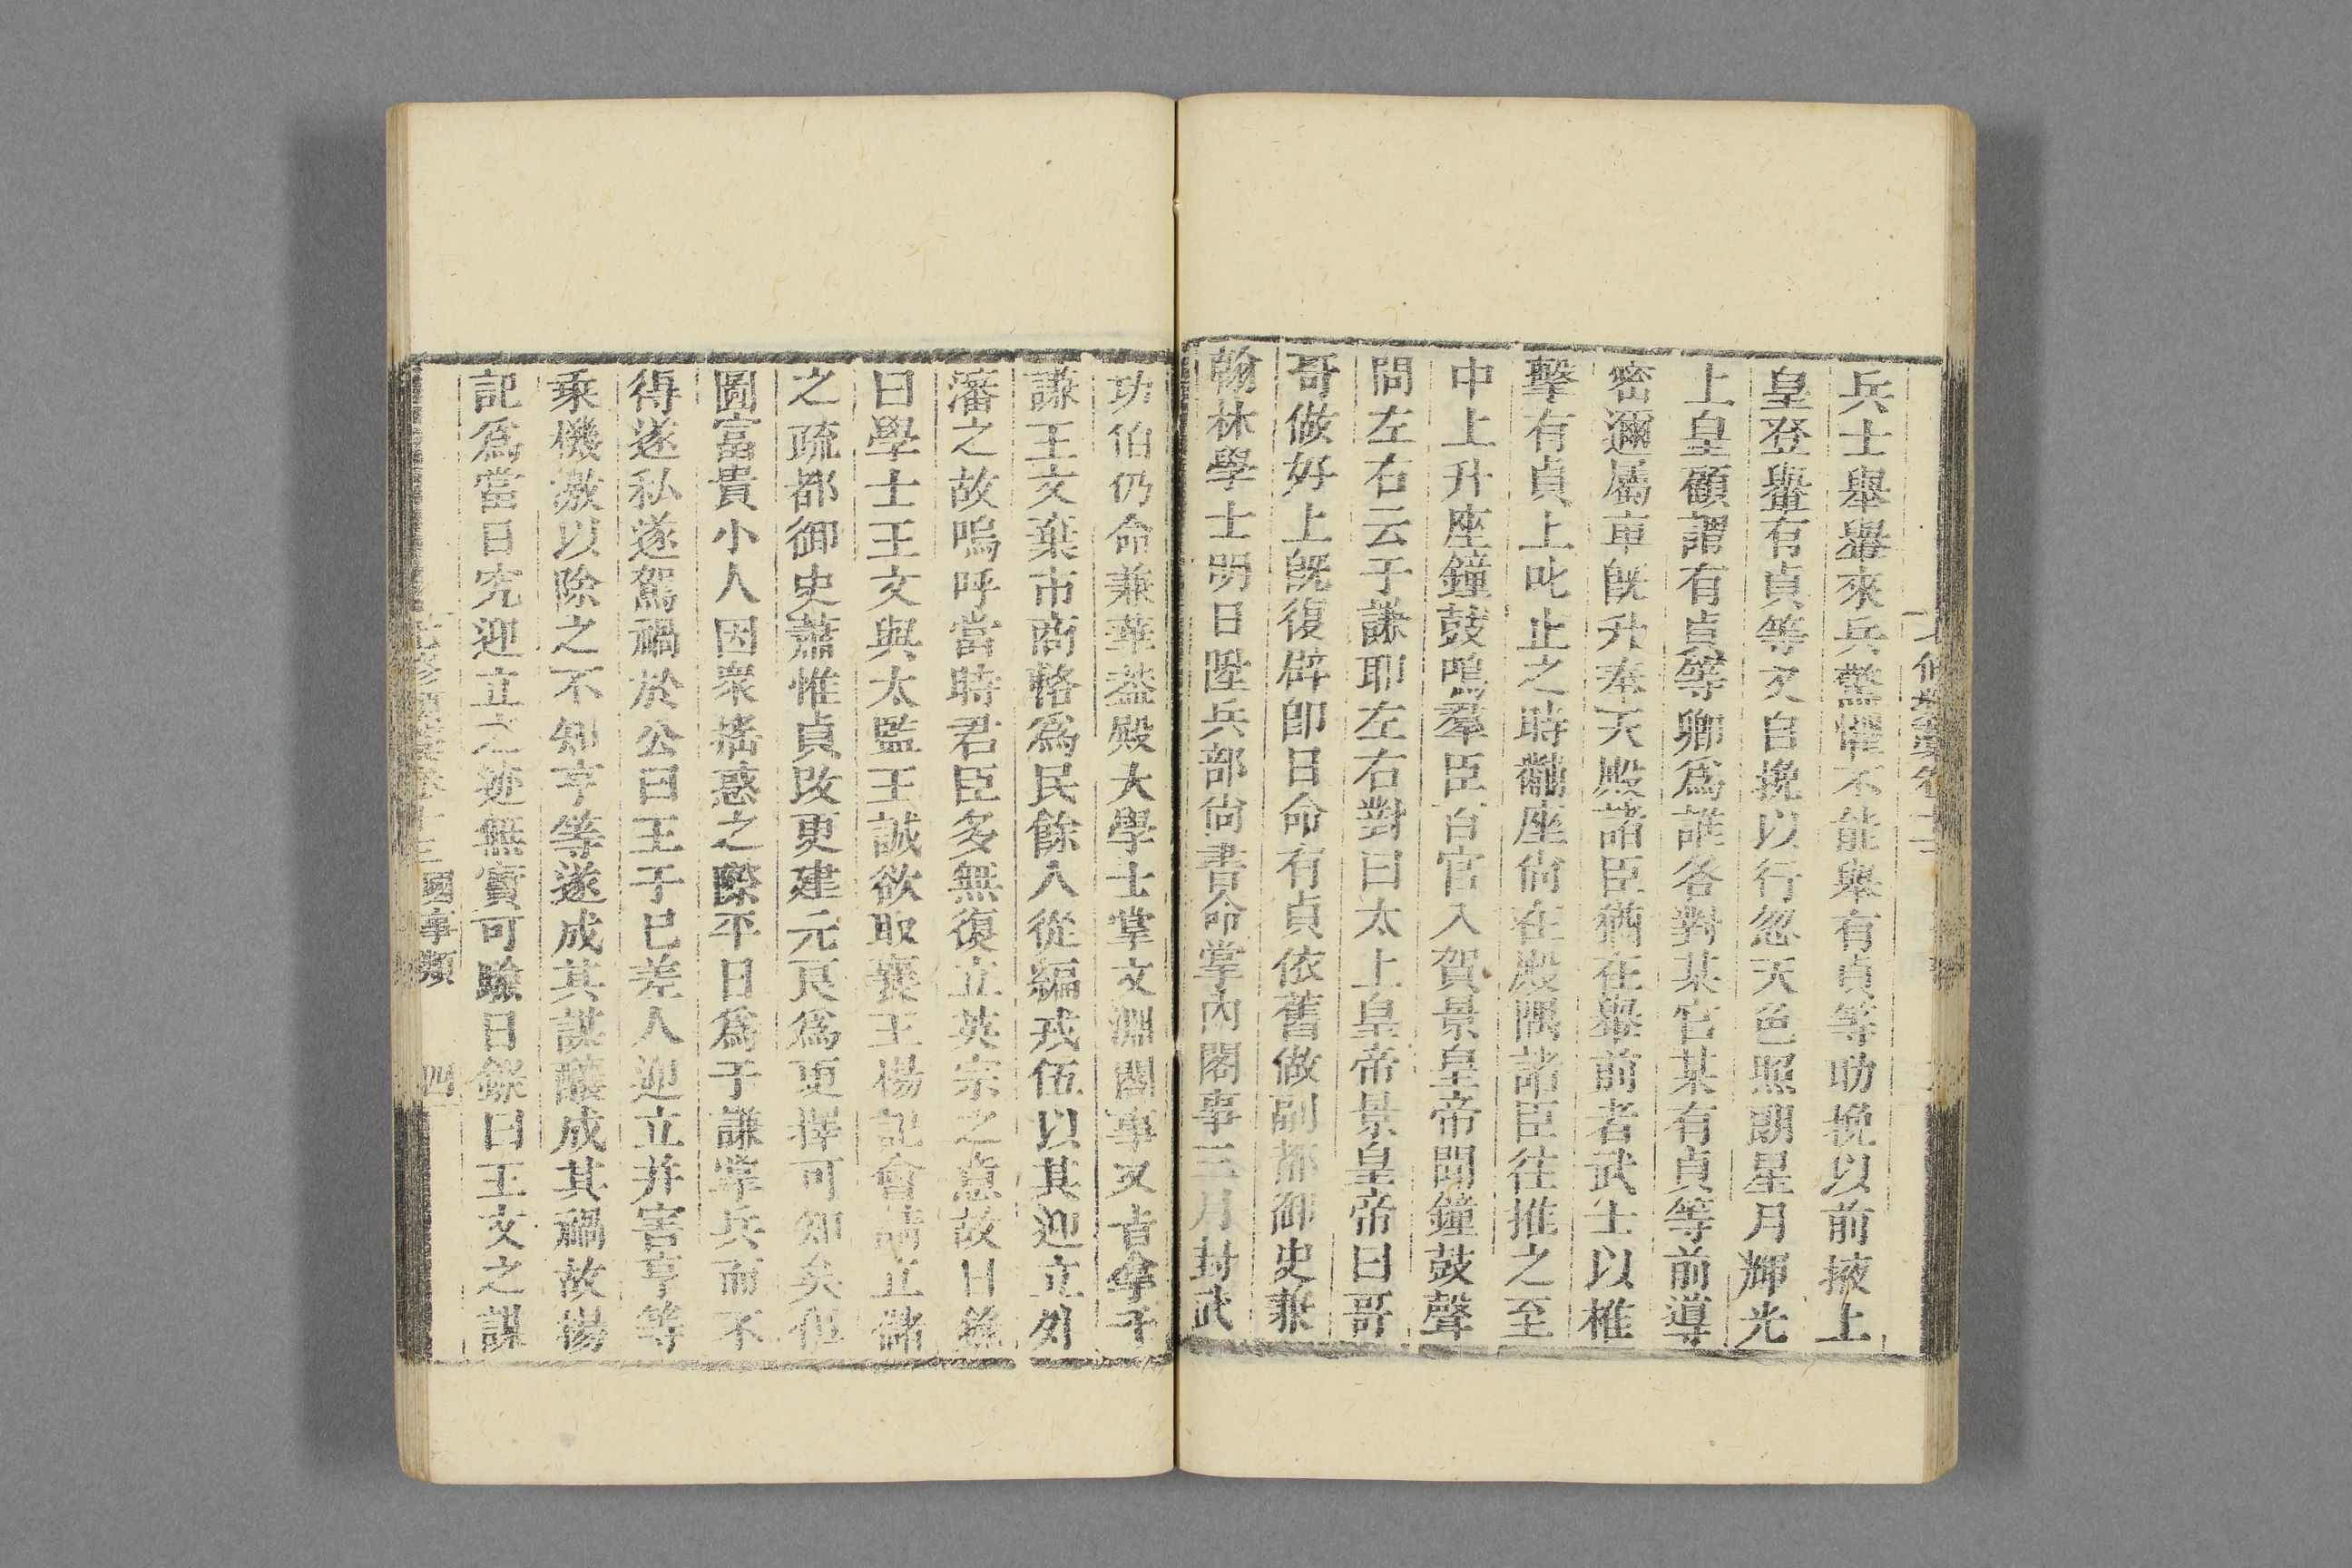 兵士舉轝來兵驚懼不能舉有貞等助挽以前掖上
皇登轝有貞等又自挽以行忽天色照朗星月輝光
上皇顧謂有貞等卿爲誰各對某官某有貞等前導
密邇屬車旣升奉天殿諸臣猶在轝前者武士以椎
擊有貞上叱止之時黼座尚在殿隅諸臣往推之至
中上升座鐘鼓鳴羣臣百官入賀景皇帝聞鐘鼓聲
問左右云于謙耶左右對曰太上皇帝景皇帝曰哥
哥做好上旣復辟卽日命有貞依舊做副都御史兼
翰林學士明日陞兵部尚書命掌內閣事三月封武
功伯仍命兼華葢殿大學士掌文淵閣事又吉拿于
謙王文棄市商輅爲民餘人從編戎伍以其迎立外
藩之故嗚呼當時君臣多無復立英宗之意故日錄
曰學士王文與太監王誠欲取襄王楊記會請立儲
之疏都御史蕭惟貞改更建元良爲更擇可知矣但
圖富貴小人因衆搖惑之際平日爲于謙掌兵而不
得遂私遂駕禍於公曰王于已差人迎立并害亨等
乘機激以除之不知亨等遂成其謀釀成其禍故楊
記爲當日究迎立之迹無實可驗日錄曰王文之謀
七修類藁卷十三 國事類 四